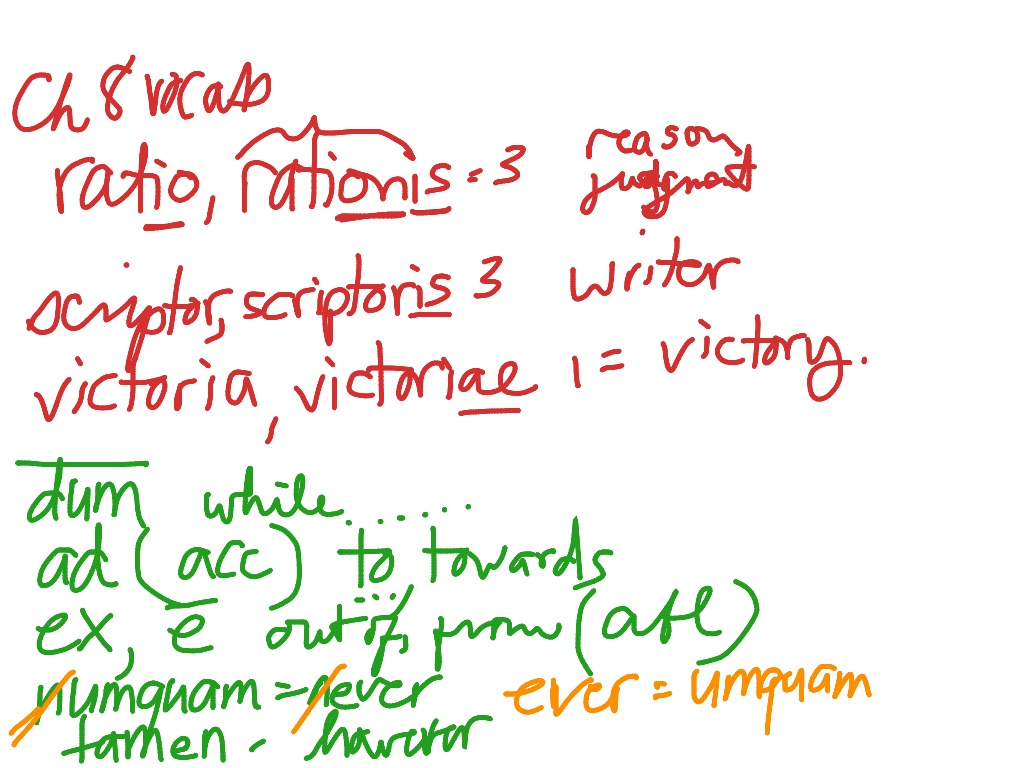 Ch 8 vocab
ratio, rationis = 3 reason judgment
scriptor, scriptoris 3 writer
victoria, victoriae 1 = victory.
dum while.......
ad (acc) to towards
ex, e out of, from (abl)
numquam = never ever = umquam
tamen -